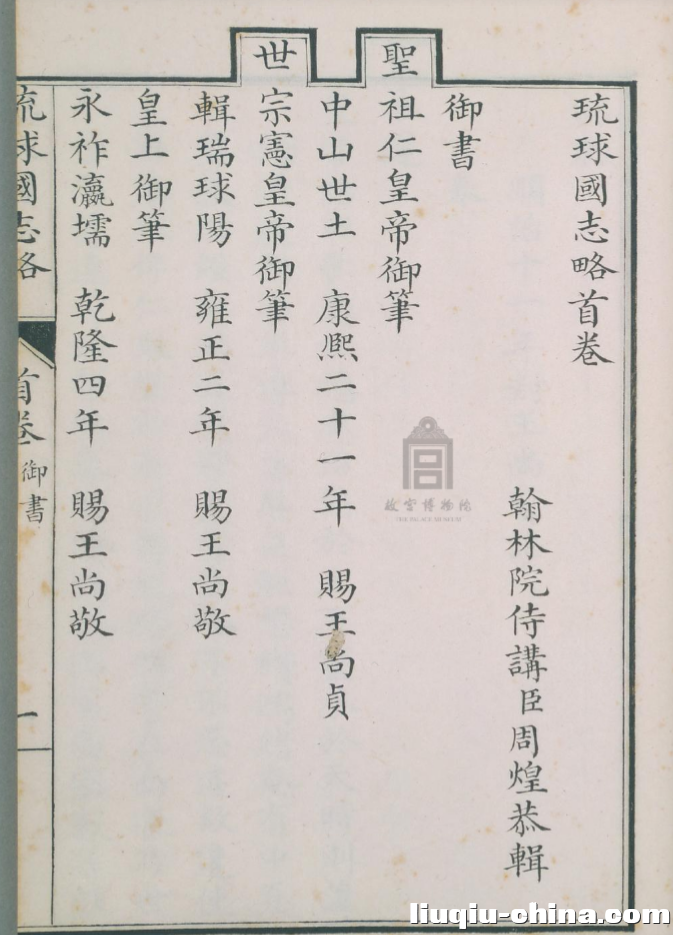 琉球國志略首卷
翰林院侍講臣周煌恭輯
御書
聖祖仁皇帝御筆
中山世土 康熙二十一年 賜王尚貞
世宗憲皇帝御筆
輯瑞球陽 雍正二年 賜王尚敬
皇上御筆
永祚瀛壖 乾隆四年 賜王尚敬
琉球國志略 首卷 御書 一
故宮博物院
THE PALACE MUSEUM
liuqiu-china.com